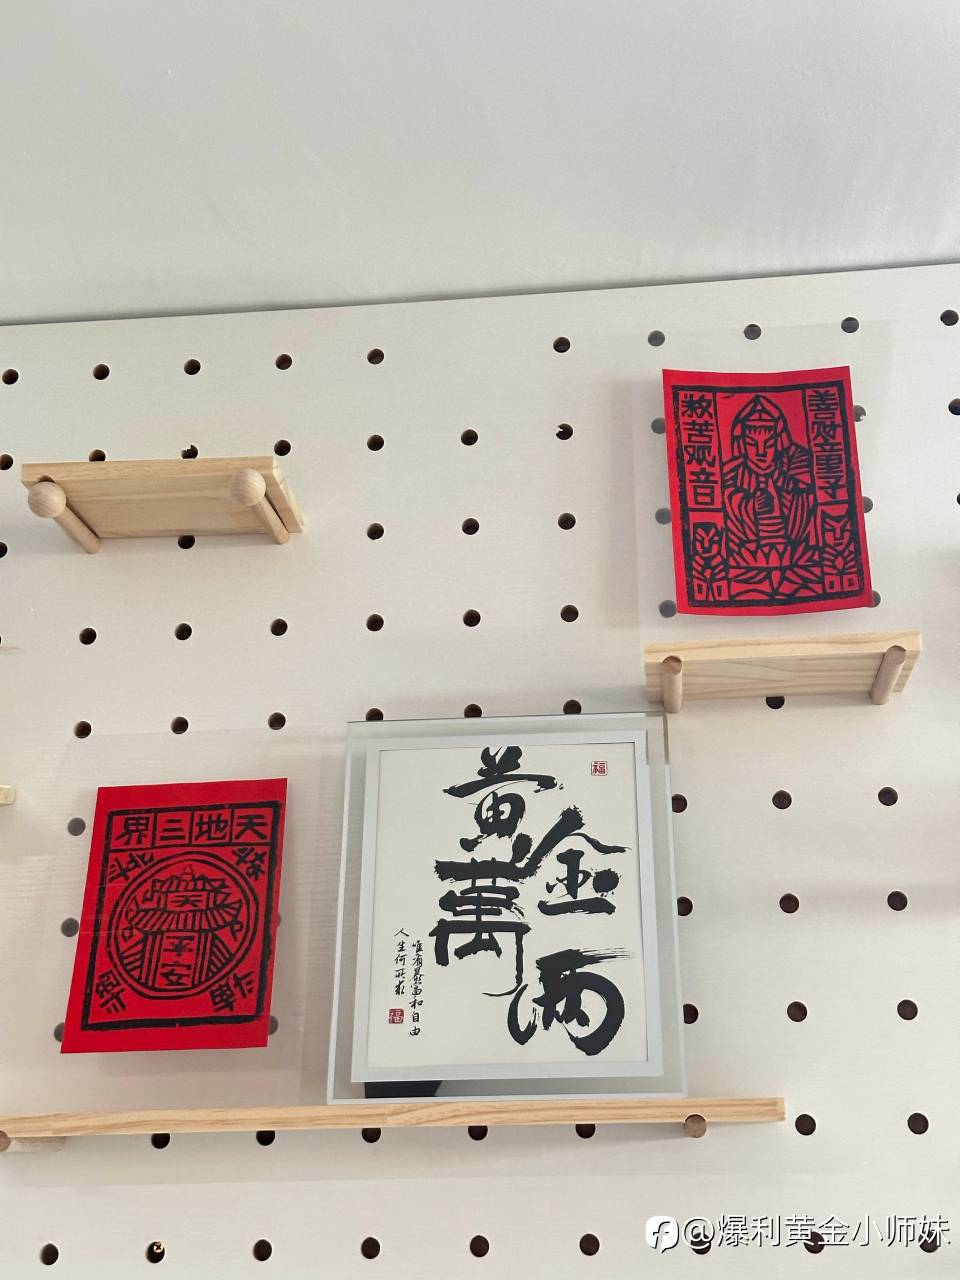 救苦观音
善财童子
天地三界
黄金萬两
福
人生何所求
唯有暴富和自由
福
@爆利黄金小师妹